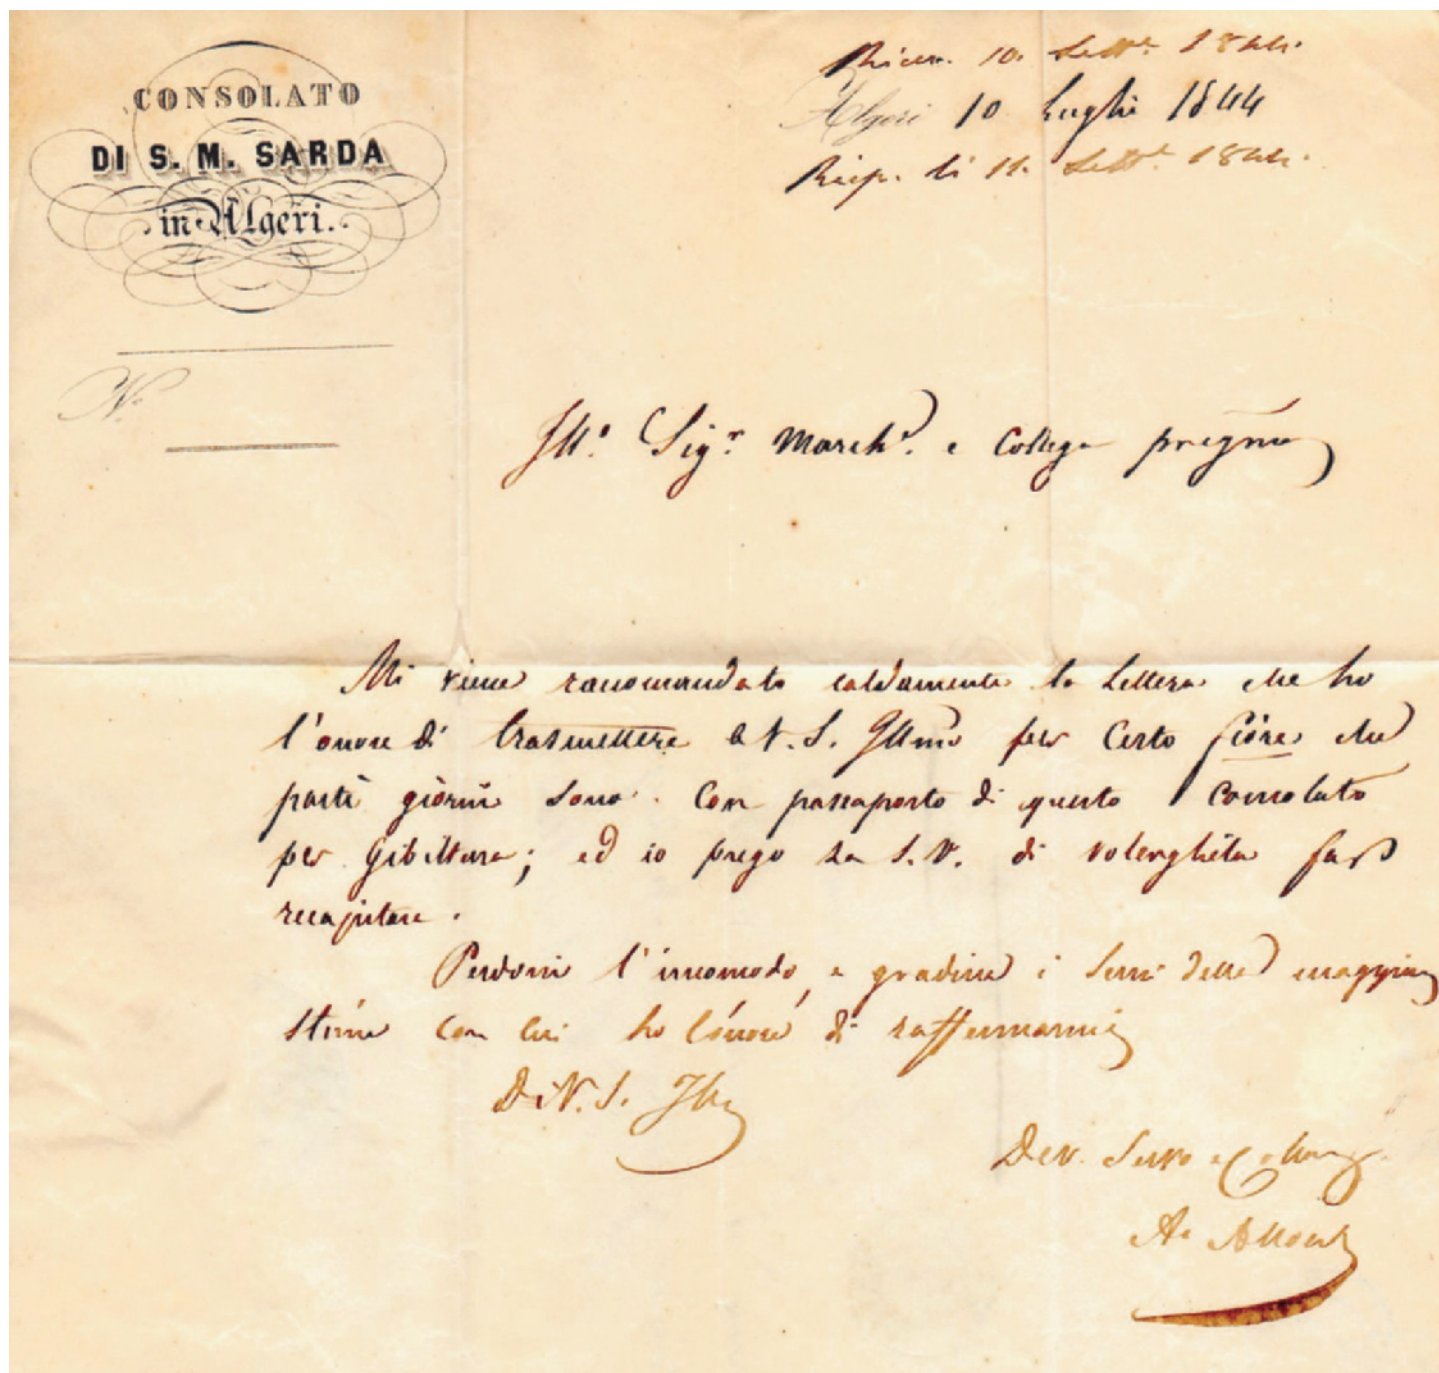 CONSOLATO
DI S. M. SARDA
in Algeri.
N.º
Ricev. 10. Sett.e 1844.
Algeri 10 Luglio 1844
Risp. li 11. Sett.e 1844.
Ill.º Sig.r March.e e Collega pregmo
Mi viene raccomandata caldamente la lettera che ho
l'onore di trasmettere a V. S. Illma per certo Fiore che
partì giorni sono con passaporto di questo Consolato
per Gibilterra; ed io prego la S. V. di volerglila far
recapitare.
Perdoni l'incomodo, e gradisca i sensi della maggior
stima con cui ho l'onore di raffermarmi
Di V. S. Illma
Dev. Servo e Collega
A.